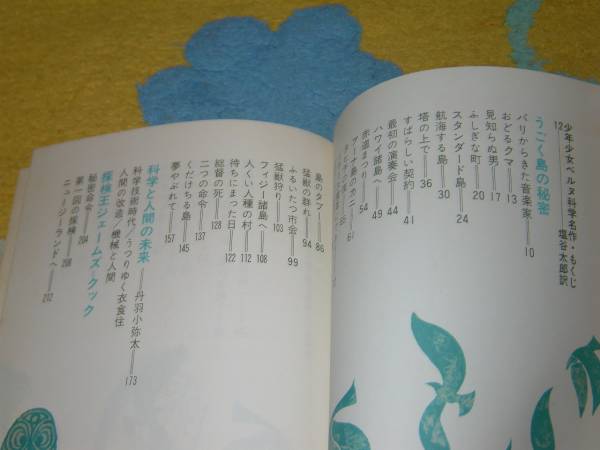 少年少女ベルヌ科学名作・もくじ
12
うごく島の秘密
塩谷太郎訳
パリからきた音楽家 10
おどるクマ 13
見知らぬ男 17
ふしぎな町 20
スタンダード島 24
航海する島 30
塔の上で 36
すばらしい契約 41
最初の演奏会 44
ハワイ諸島へ 49
赤道まつり
61
島のタブー 86
猛獣の群れ 94
ふるいたつ市会 99
猛獣狩り 103
フィジー諸島へ 108
人くい人種の村 112
待ちにまった日 122
総督の死 128
二つの命令 137
くだけちる島 145
夢やぶれて 157
科学と人間の未来 丹羽小弥太 173
科学技術時代/うつりゆく衣食住
人間の改造/機械と人間
探検王ジェームス=クック
秘密命令 204
第一回の探検 208
ニュージーランドへ 212